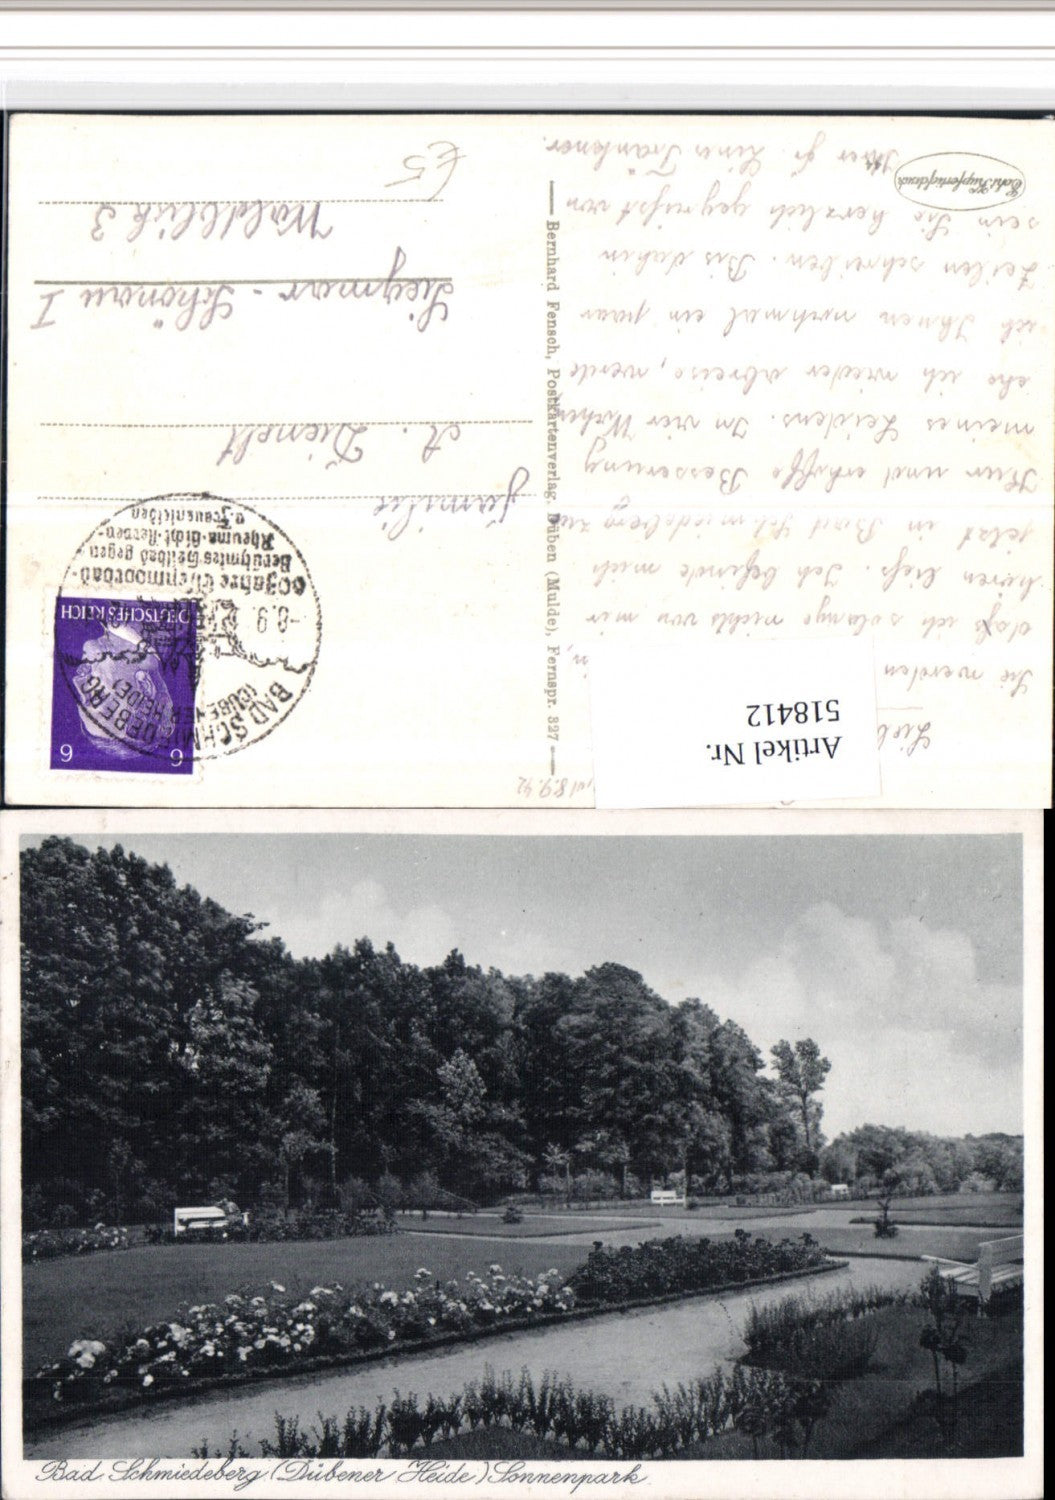 Lieb
Sie werden
daß ich solange nichts von mir
hören ließ. Ich befinde mich
jetzt in Bad Schmiedeberg zur
Kur und erhoffe Besserung
meines Leidens. In vier Wochen,
ehe ich wieder abreise, werde
ich Ihnen nochmal ein paar
Zeilen schreiben. Bis dahin
sein Sie herzlich gegrüßt von
Ihrer
Echt Kupfertiefdruck
Artikel Nr.
518412
8.9.42
Bernhard Fensch, Postkartenverlag, Düben (Mulde), Fernspr. 327
6 6
DEUTSCHES REICH
BAD SCHMIEDEBERG
(DÜBENER HEIDE)
-8.9.42
60 Jahre Eisenmoorbad-
Berühmtes Heilbad gegen
Rheuma-Gicht-Nerven-
u. Frauenleiden
Familie
A. Dienelt
Siegmar-Schönau I
Waldblick 3
€5
Bad Schmiedeberg (Dübener Heide) Sonnenpark